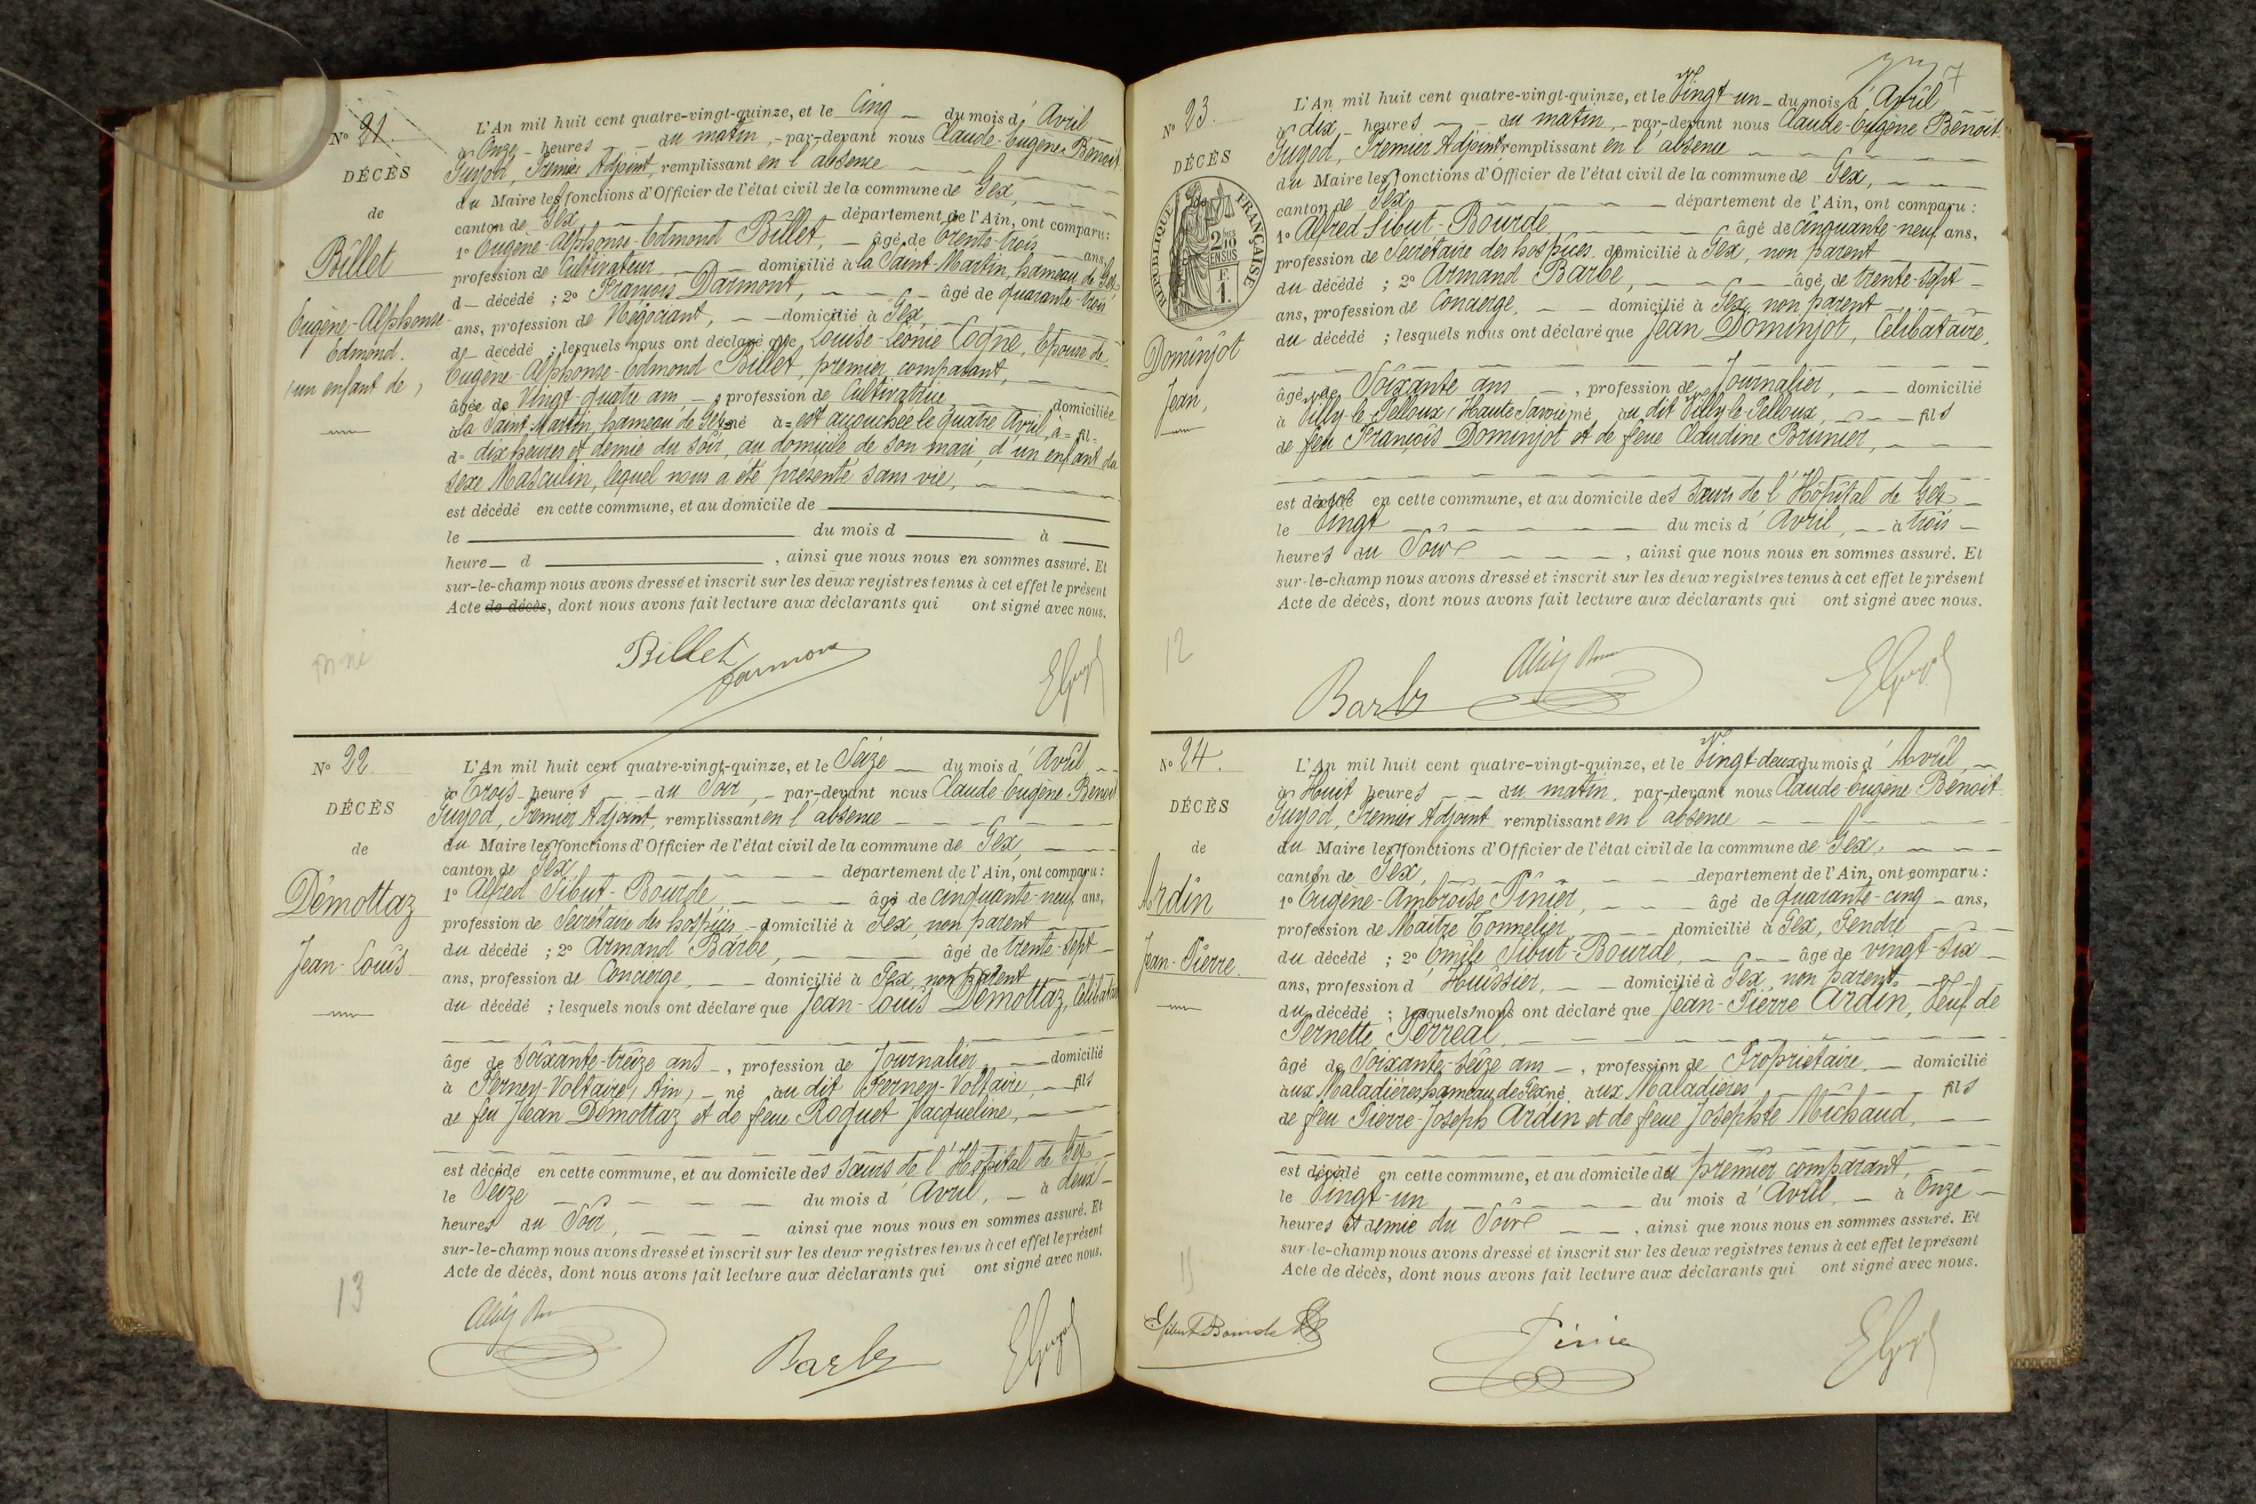 N° 21.
DÉCÈS
de
Billet
Eugène-Alphonse-
Edmond.
(un enfant de)
L'An mil huit cent quatre-vingt-quinze, et le Cinq du mois d'Avril
à Onze heures du matin, par-devant nous Claude-Eugène Benoit
Guyod, Premier Adjoint, remplissant en l'absence
du Maire les fonctions d'Officier de l'état civil de la commune de Gex,
canton de Gex département de l'Ain, ont comparu:
1° Eugène-Alphonse-Edmond Billet, âgé de trente-trois ans,
profession de Cultivateur domicilié à la Saint-Martin, hameau de Gex
d décédé ; 2° François Darmont, âgé de quarante-trois
ans, profession de Négociant, domicilié à Gex
d décédé ; lesquels nous ont déclaré que Louise-Léonie Cogne, Epouse de
Eugène-Alphonse-Edmond Billet, premier comparant,
âgée de Vingt-quatre ans, profession de Cultivatrice domiciliée
à la Saint-Martin, hameau de Gex né à est accouchée le quatre Avril, à fil
d dix heures et demie du soir, au domicile de son mari, d'un enfant du
sexe Masculin, lequel nous a été présenté sans vie,
est décédé en cette commune, et au domicile de
le du mois d à
heure d , ainsi que nous nous en sommes assuré. Et
sur-le-champ nous avons dressé et inscrit sur les deux registres tenus à cet effet le présent
Acte de décès, dont nous avons fait lecture aux déclarants qui ont signé avec nous.
Billet
Darmont
EGuyod
N° 22.
DÉCÈS
de
Démottaz
Jean-Louis
L'An mil huit cent quatre-vingt-quinze, et le Seize du mois d'Avril
à Trois heures du Soir, par-devant nous Claude-Eugène-Benoit
Guyod, Premier Adjoint, remplissant en l'absence
du Maire les fonctions d'Officier de l'état civil de la commune de Gex,
canton de Gex département de l'Ain, ont comparu:
1° Alfred Sibut-Bourde, âgé de cinquante-neuf ans,
profession de Secrétaire des hospices domicilié à Gex, non parent
du décédé ; 2° Armand Barbe, âgé de trente-sept
ans, profession de Concierge, domicilié à Gex, non parent
du décédé ; lesquels nous ont déclaré que Jean-Louis Démottaz, Célibataire
âgé de soixante-treize ans, profession de Journalier domicilié
à Ferney-Voltaire (Ain) né au dit Ferney-Voltaire, fils
de feu Jean Démottaz et de feue Roquet Jacqueline,
est décédé en cette commune, et au domicile des sœurs de l'Hôpital de Gex
le Seize du mois d'Avril, à deux
heures du Soir, ainsi que nous nous en sommes assuré. Et
sur-le-champ nous avons dressé et inscrit sur les deux registres tenus à cet effet le présent
Acte de décès, dont nous avons fait lecture aux déclarants qui ont signé avec nous.
13
Barbe
EGuyod
7
N° 23.
DÉCÈS
RÉPUBLIQUE FRANÇAISE
2/10
EN SUS
F.
1.
Dominjot
Jean,
L'An mil huit cent quatre-vingt-quinze, et le Vingt-un du mois d'Avril
à dix heures du matin, par-devant nous Claude-Eugène Benoit
Guyod, Premier Adjoint remplissant en l'absence
du Maire les fonctions d'Officier de l'état civil de la commune de Gex,
canton de Gex département de l'Ain, ont comparu:
1° Alfred Sibut-Bourde âgé de cinquante-neuf ans,
profession de Secrétaire des hospices domicilié à Gex, non parent
du décédé ; 2° Armand Barbe, âgé de trente-sept
ans, profession de Concierge, domicilié à Gex non parent
du décédé ; lesquels nous ont déclaré que Jean Dominjot, Célibataire,
âgé de Soixante ans, profession de Journalier, domicilié
à Villy-le-Pelloux (Haute Savoie) né au dit Villy-le-Pelloux, fils
de feu François Dominjot et de feue Claudine Brunier,
est décédé en cette commune, et au domicile des sœurs de l'Hôpital de Gex
le Vingt du mois d'Avril, à trois
heures du Soir, ainsi que nous nous en sommes assuré. Et
sur-le-champ nous avons dressé et inscrit sur les deux registres tenus à cet effet le présent
Acte de décès, dont nous avons fait lecture aux déclarants qui ont signé avec nous.
12
Barbe
EGuyod
N° 24.
DÉCÈS
de
Ardin
Jean-Pierre.
L'An mil huit cent quatre-vingt-quinze, et le Vingt-deux du mois d'Avril,
à Huit heures du matin, par-devant nous Claude-Eugène-Benoit
Guyod, Premier Adjoint remplissant en l'absence
du Maire les fonctions d'Officier de l'état civil de la commune de Gex,
canton de Gex, département de l'Ain, ont comparu:
1° Eugène-Ambroise Pinier, âgé de quarante-cinq ans,
profession de Maître Tonnelier, domicilié à Gex, Gendre
du décédé ; 2° Emile Sibut-Bourde, âgé de vingt-six
ans, profession d'Huissier, domicilié à Gex, non parent
du décédé ; lesquels nous ont déclaré que Jean-Pierre Ardin, Veuf de
Pernette Perréal,
âgé de Soixante-seize ans, profession de Propriétaire domicilié
aux Maladières, hameau de Gex né aux Maladières fils
de feu Pierre-Joseph Ardin et de feue Josephte Michaud,
est décédé en cette commune, et au domicile du premier comparant,
le Vingt-un du mois d'Avril, à Onze
heures et demie du Soir, ainsi que nous nous en sommes assuré. Et
sur-le-champ nous avons dressé et inscrit sur les deux registres tenus à cet effet le présent
Acte de décès, dont nous avons fait lecture aux déclarants qui ont signé avec nous.
Sibut Bourde
Pinier
EGuyod